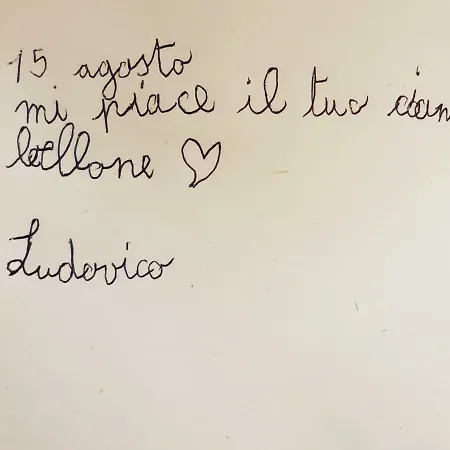 15 agosto
mi piace il tuo
bellone ♡
Ludovico